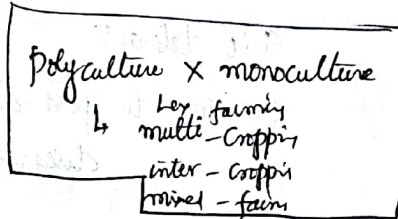 Polyculture X monoculture
Ley farming
↳ multi-Croppin
inter-Croppin
mixed-farm